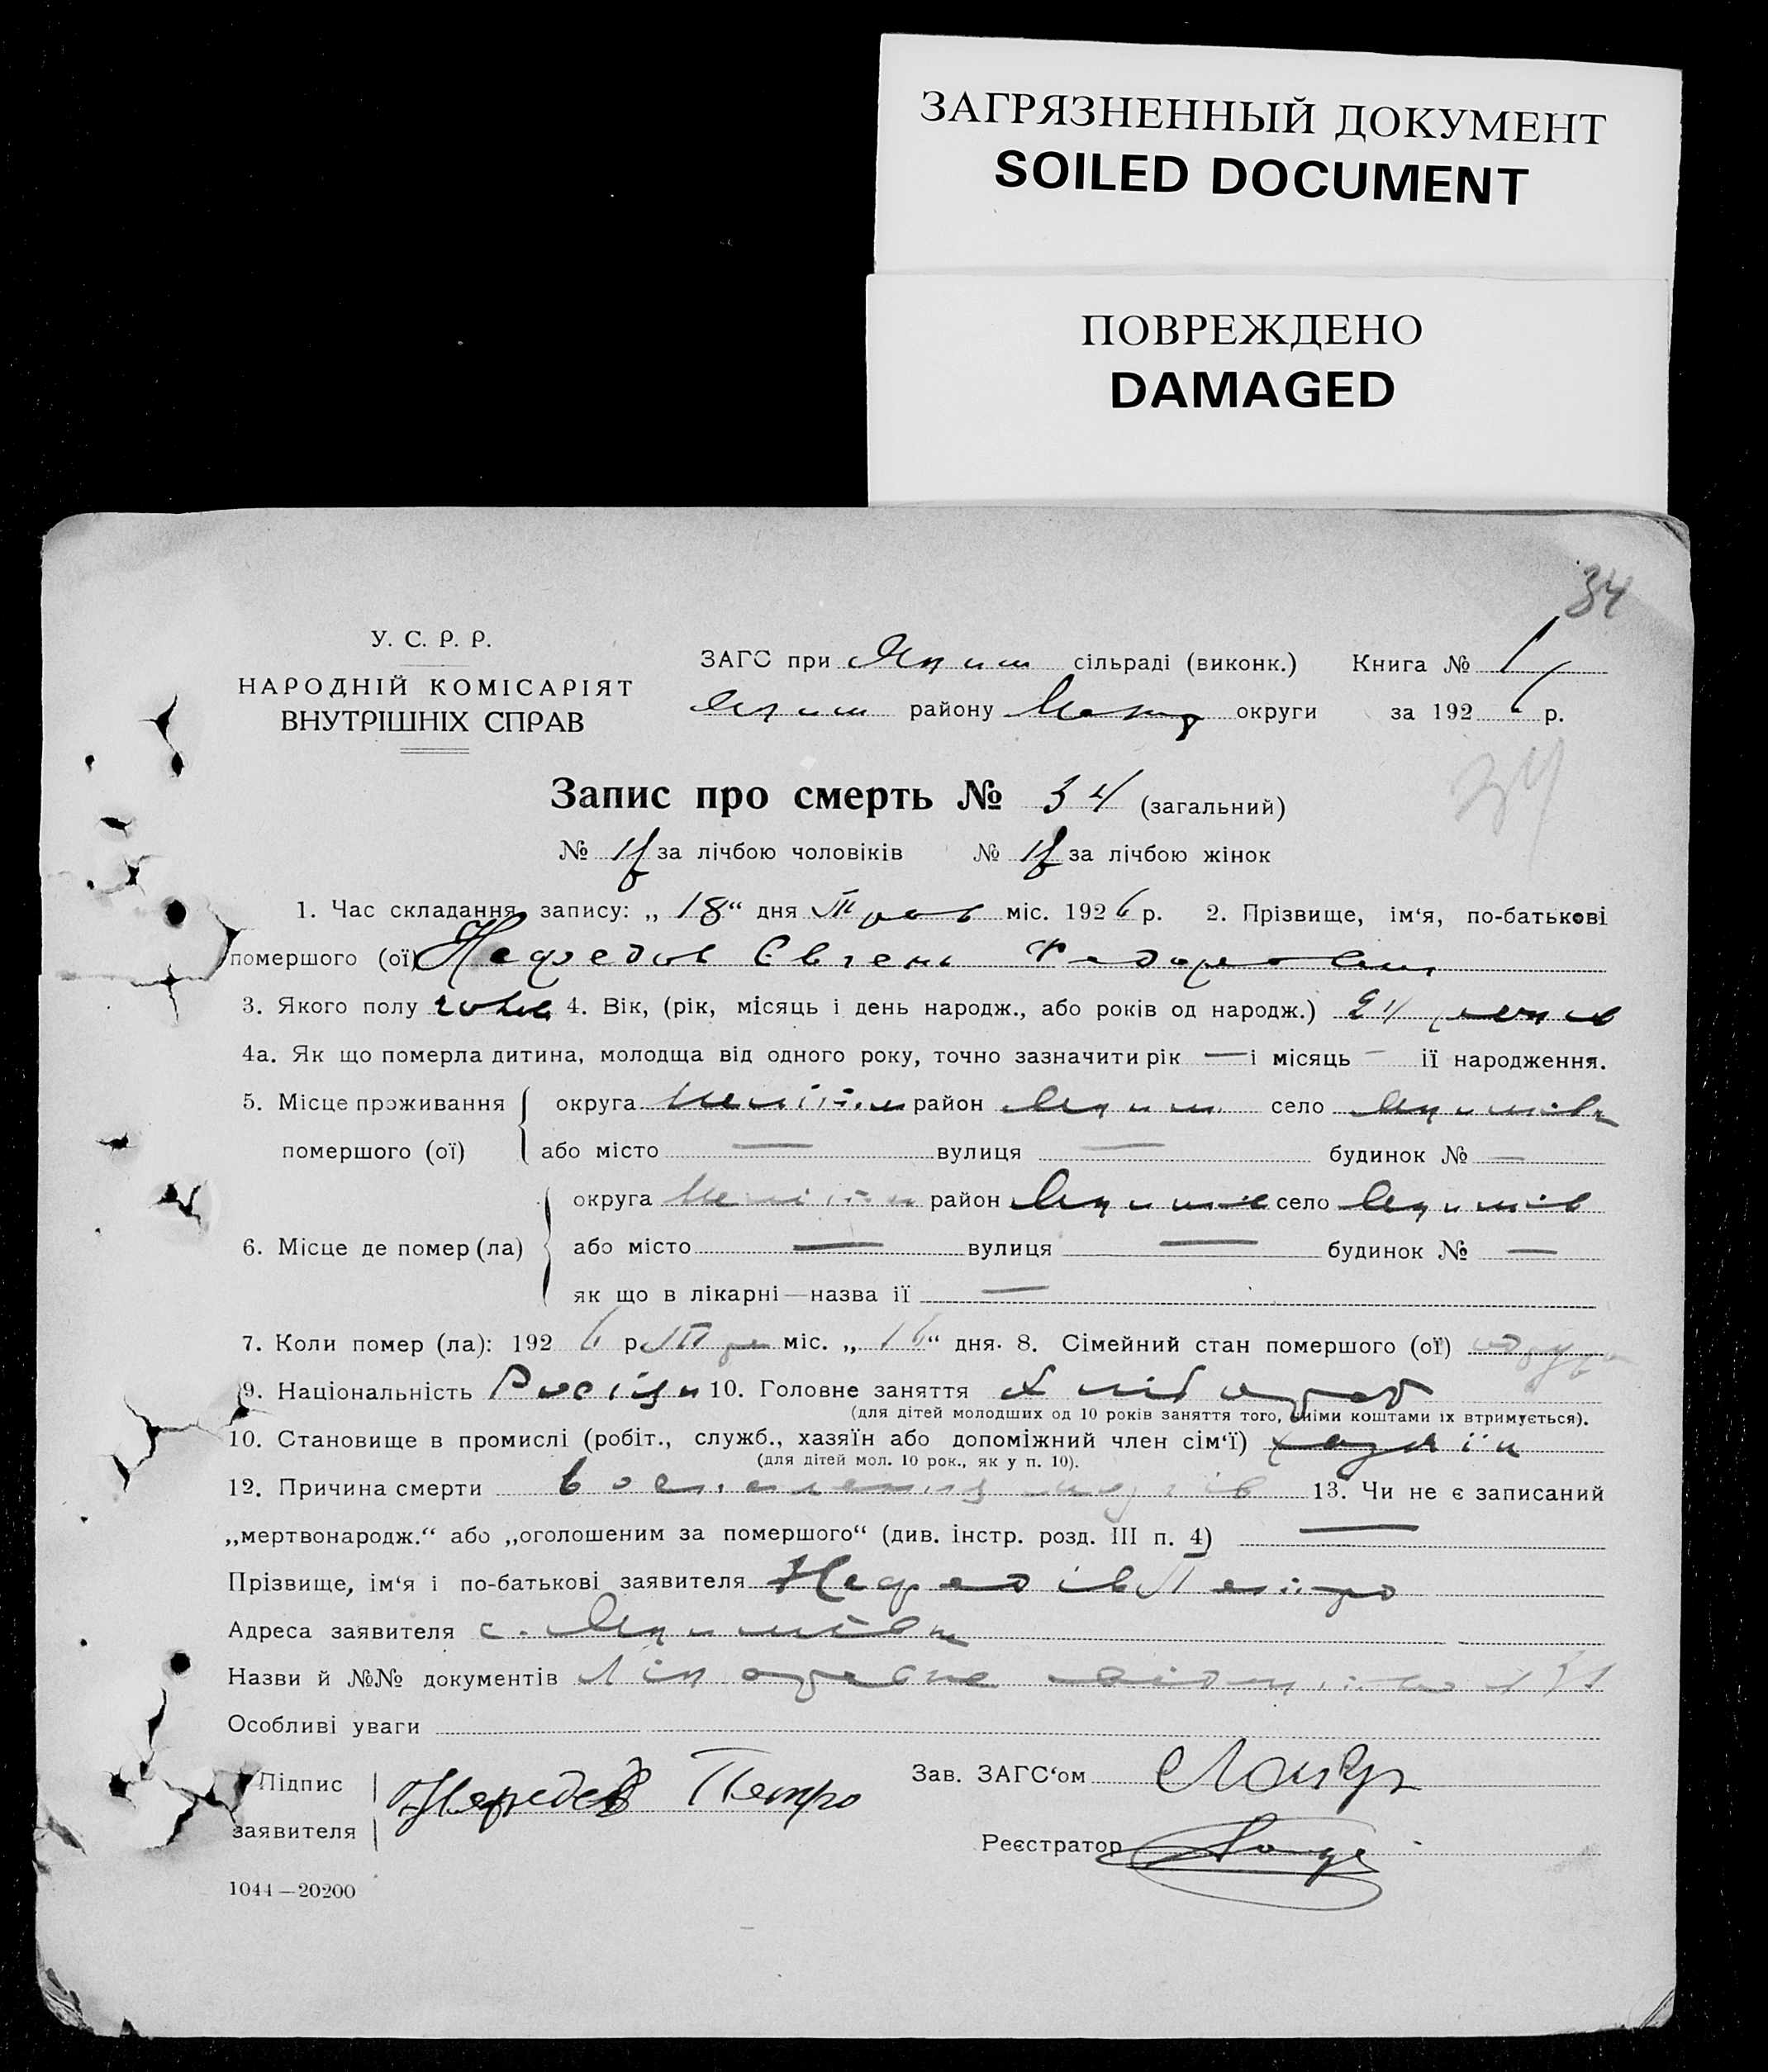 ЗАГРЯЗНЕННЫЙ ДОКУМЕНТ
SOILED DOCUMENT
ПОВРЕЖДЕНО
DAMAGED
34
У. С. Р. Р.
НАРОДНІЙ КОМІСАРІЯТ
ВНУТРІШНІХ СПРАВ
ЗАГС при Яким сільраді (виконк.) Книга № 1
Яким району округи за 1926 р.
34
Запис про смерть № 34 (загальний)
№ за лічбою чоловіків № за лічбою жінок
1. Час складання запису: „ 18 “ дня Трав міс. 1926 р. 2. Прізвище, ім‘я, по-батькові
помершого (ої) Нефедов Євгень Федорович
3. Якого полу чолов 4. Вік, (рік, місяць і день народж., або років од народж.)
4а. Як що померла дитина, молодща від одного року, точно зазначити рік — і місяць — її народження.
5. Місце проживання помершого (ої) округа Меліт район Яким село Якимівка
або місто — вулиця — будинок № —
6. Місце де помер (ла) округа Меліт район Якимів село Якимів
або місто — вулиця — будинок № —
як що в лікарні—назва її —
7. Коли помер (ла): 1926 р. Трав міс. „ 16 “ дня. 8. Сімейний стан помершого (ої)
9. Національність Росіян 10. Головне заняття Хлібороб
(для дітей молодших од 10 років заняття того, чиїми коштами їх втримується).
10. Становище в промислі (робіт., служб., хазяїн або допоміжний член сім‘ї) хазяїн
(для дітей мол. 10 рок., як у п. 10).
12. Причина смерти 13. Чи не є записаний
„мертвонародж.“ або „оголошеним за помершого“ (див. інстр. розд. III п. 4) —
Прізвище, ім‘я і по-батькові заявителя Нефедів Петро
Адреса заявителя с. Якимівка
Назви й №№ документів Лікарське
Особливі уваги
Підпис заявителя Нефедов Петро
Зав. ЗАГС‘ом
Реєстратор
1044—20200